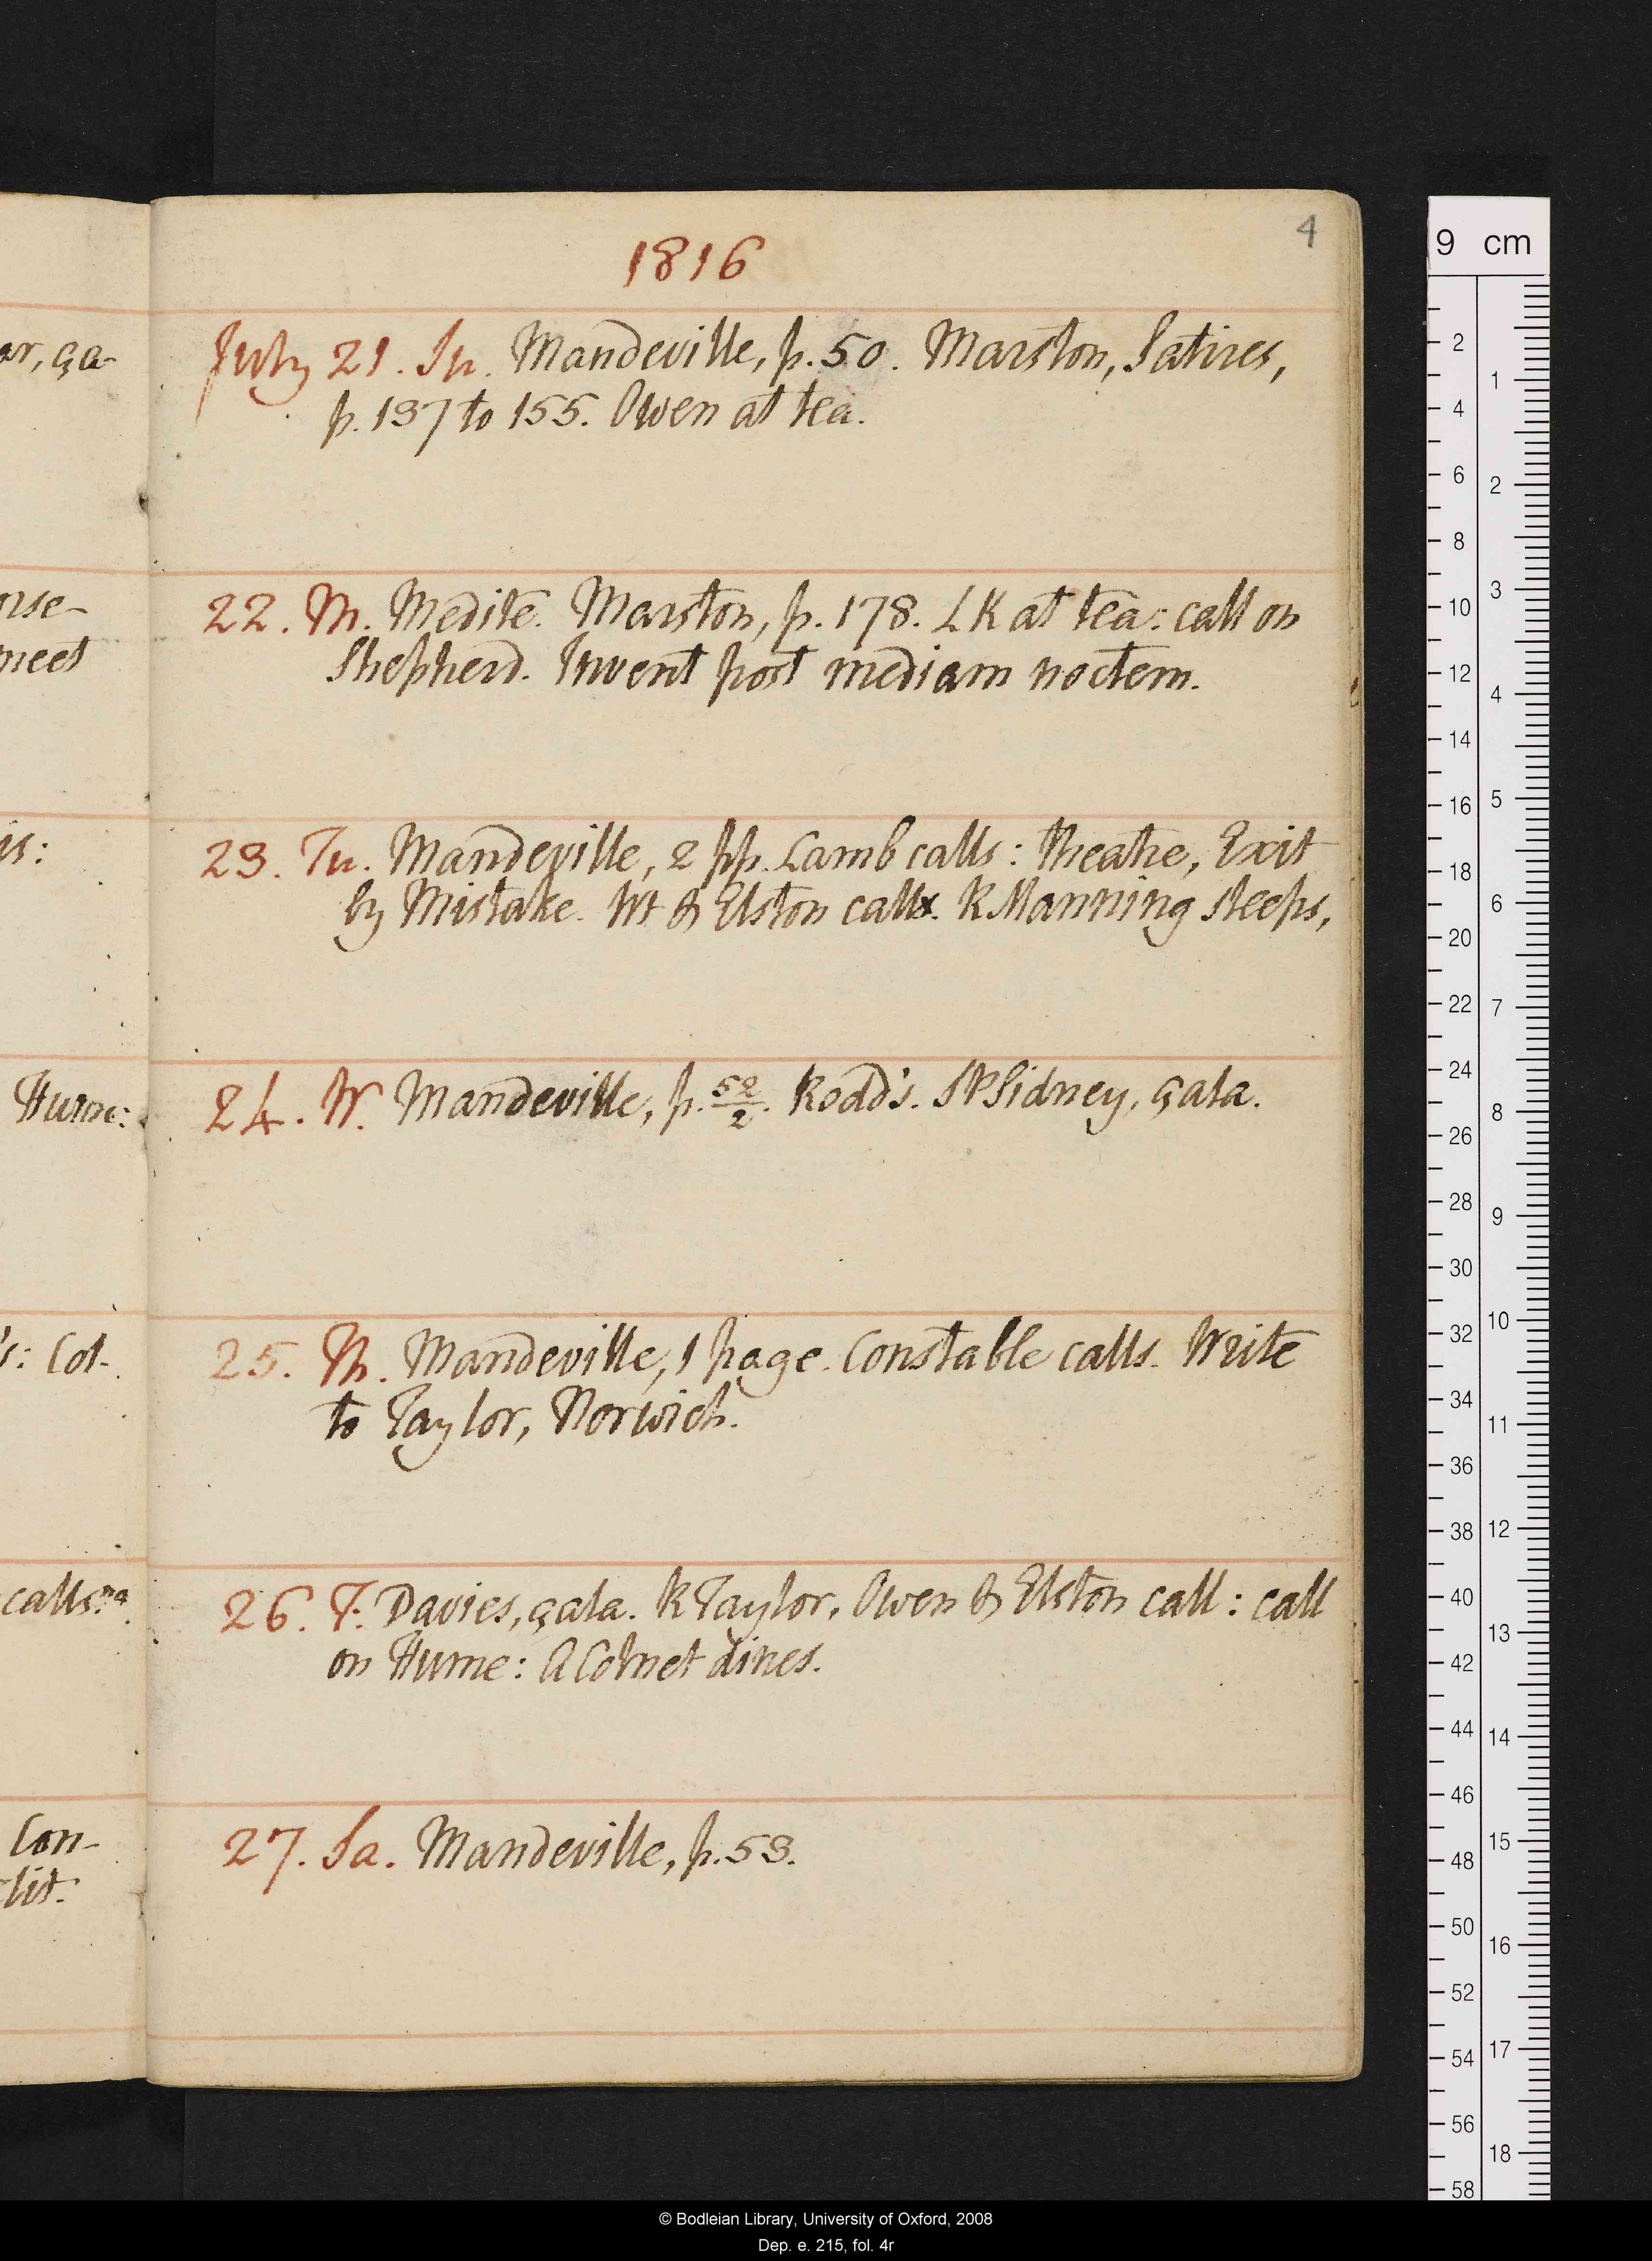 4
1816
ar, ça-
July 21. Su. Mandeville, p. 50. Marston, Satires,
p. 137 to 155. Owen at tea.
22. M. Medite. Marston, p. 178. LK at tea: call on
Shepherd. Invent post mediam noctem.
meet
is:
23. Tu. Mandeville, 2 pp. Lamb calls: theatre, Exit
by Mistake. Wt & Elston call. K Manning sleeps,
Hume:
24. W. Mandeville, p. 52/2. Rodd's. S P Sidney, çala.
's: Col-
25. Th. Mandeville, 1 page. Constable calls. Write
to Taylor, Norwich.
calls: na
26. F. Davies, çala. R Taylor, Owen & Elston call: call
on Hume: A Colnet dines.
Con-
lit.
27. Sa. Mandeville, p. 53.
9 cm
2 4 6 8 10 12 14 16 18 20 22 24 26 28 30 32 34 36 38 40 42 44 46 48 50 52 54 56 58
1 2 3 4 5 6 7 8 9 10 11 12 13 14 15 16 17 18
© Bodleian Library, University of Oxford, 2008
Dep. e. 215, fol. 4r